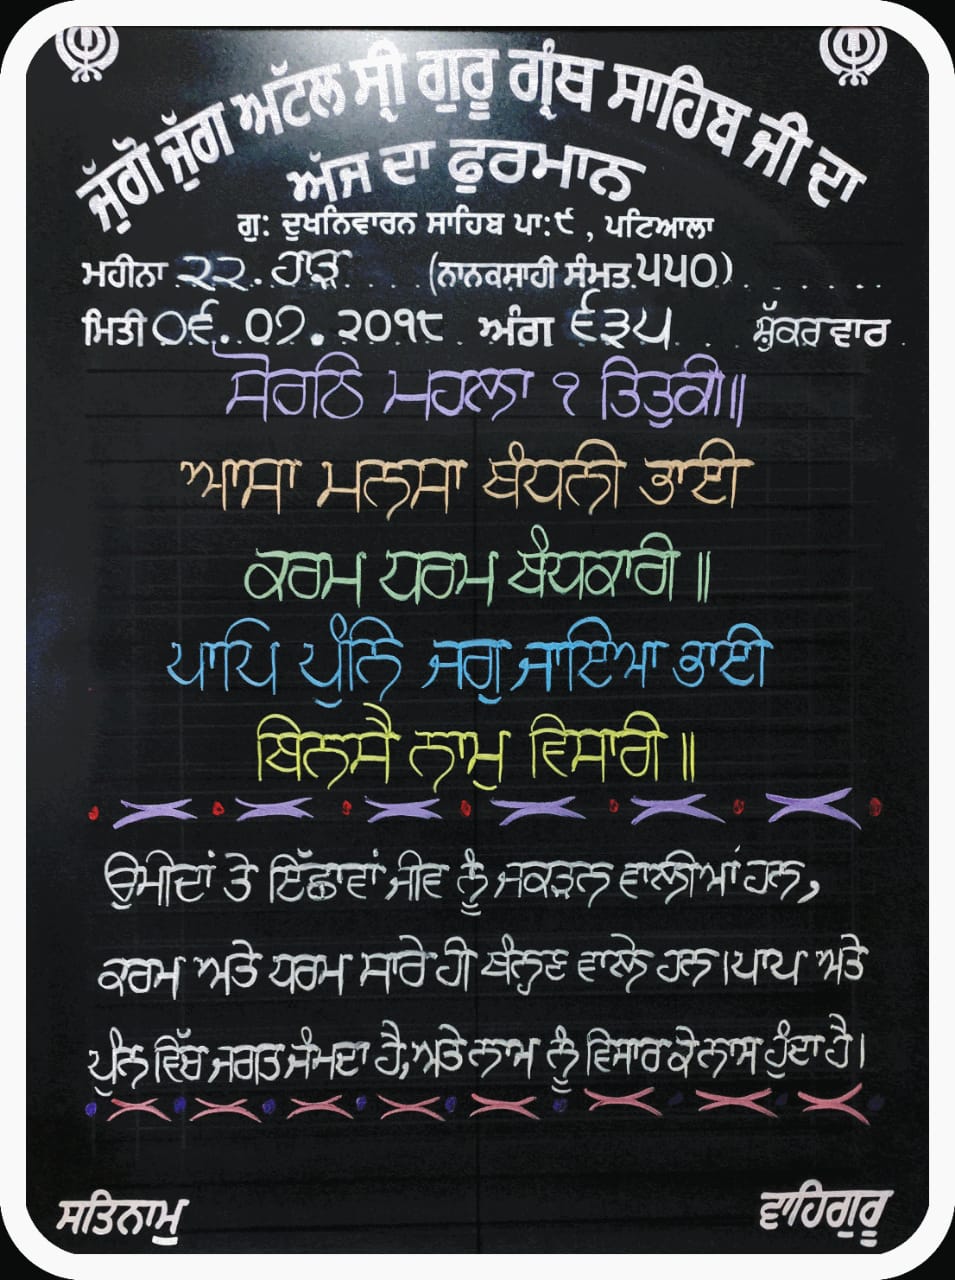 ਜੁੱਗੋ ਜੁੱਗ ਅਟੱਲ ਸ੍ਰੀ ਗੁਰੂ ਗ੍ਰੰਥ ਸਾਹਿਬ ਜੀ ਦਾ
ਅੱਜ ਦਾ ਫੁਰਮਾਨ
ਗੁ: ਦੁਖਨਿਵਾਰਨ ਸਾਹਿਬ ਪਾ:੯, ਪਟਿਆਲਾ
ਮਹੀਨਾ ੨੨. ਹਾੜ (ਨਾਨਕਸ਼ਾਹੀ ਸੰਮਤ ੫੫੦)
ਮਿਤੀ ੦੬. ੦੭. ੨੦੧੮ ਅੰਗ ੬੩੫ ਸ਼ੁੱਕਰਵਾਰ
ਸੋਰਠਿ ਮਹਲਾ ੧ ਤਿਤੁਕੀ॥
ਆਸਾ ਮਨਸਾ ਬੰਧਨੀ ਭਾਈ
ਕਰਮ ਧਰਮ ਬੰਧਕਾਰੀ॥
ਪਾਪਿ ਪੁੰਨਿ ਜਗੁ ਜਾਇਆ ਭਾਈ
ਬਿਨਸੈ ਨਾਮੁ ਵਿਸਾਰੀ॥
ਉਮੀਦਾਂ ਤੇ ਇੱਛਾਵਾਂ ਜੀਵ ਨੂੰ ਜਕੜਨ ਵਾਲੀਆਂ ਹਨ,
ਕਰਮ ਅਤੇ ਧਰਮ ਸਾਰੇ ਹੀ ਬੰਨ੍ਹਣ ਵਾਲੇ ਹਨ।ਪਾਪ ਅਤੇ
ਪੁੰਨ ਵਿੱਚ ਜਗਤ ਜੰਮਦਾ ਹੈ,ਅਤੇ ਨਾਮ ਨੂੰ ਵਿਸਾਰ ਕੇ ਨਾਸ ਹੁੰਦਾ ਹੈ।
ਸਤਿਨਾਮੁ ਵਾਹਿਗੁਰੂ